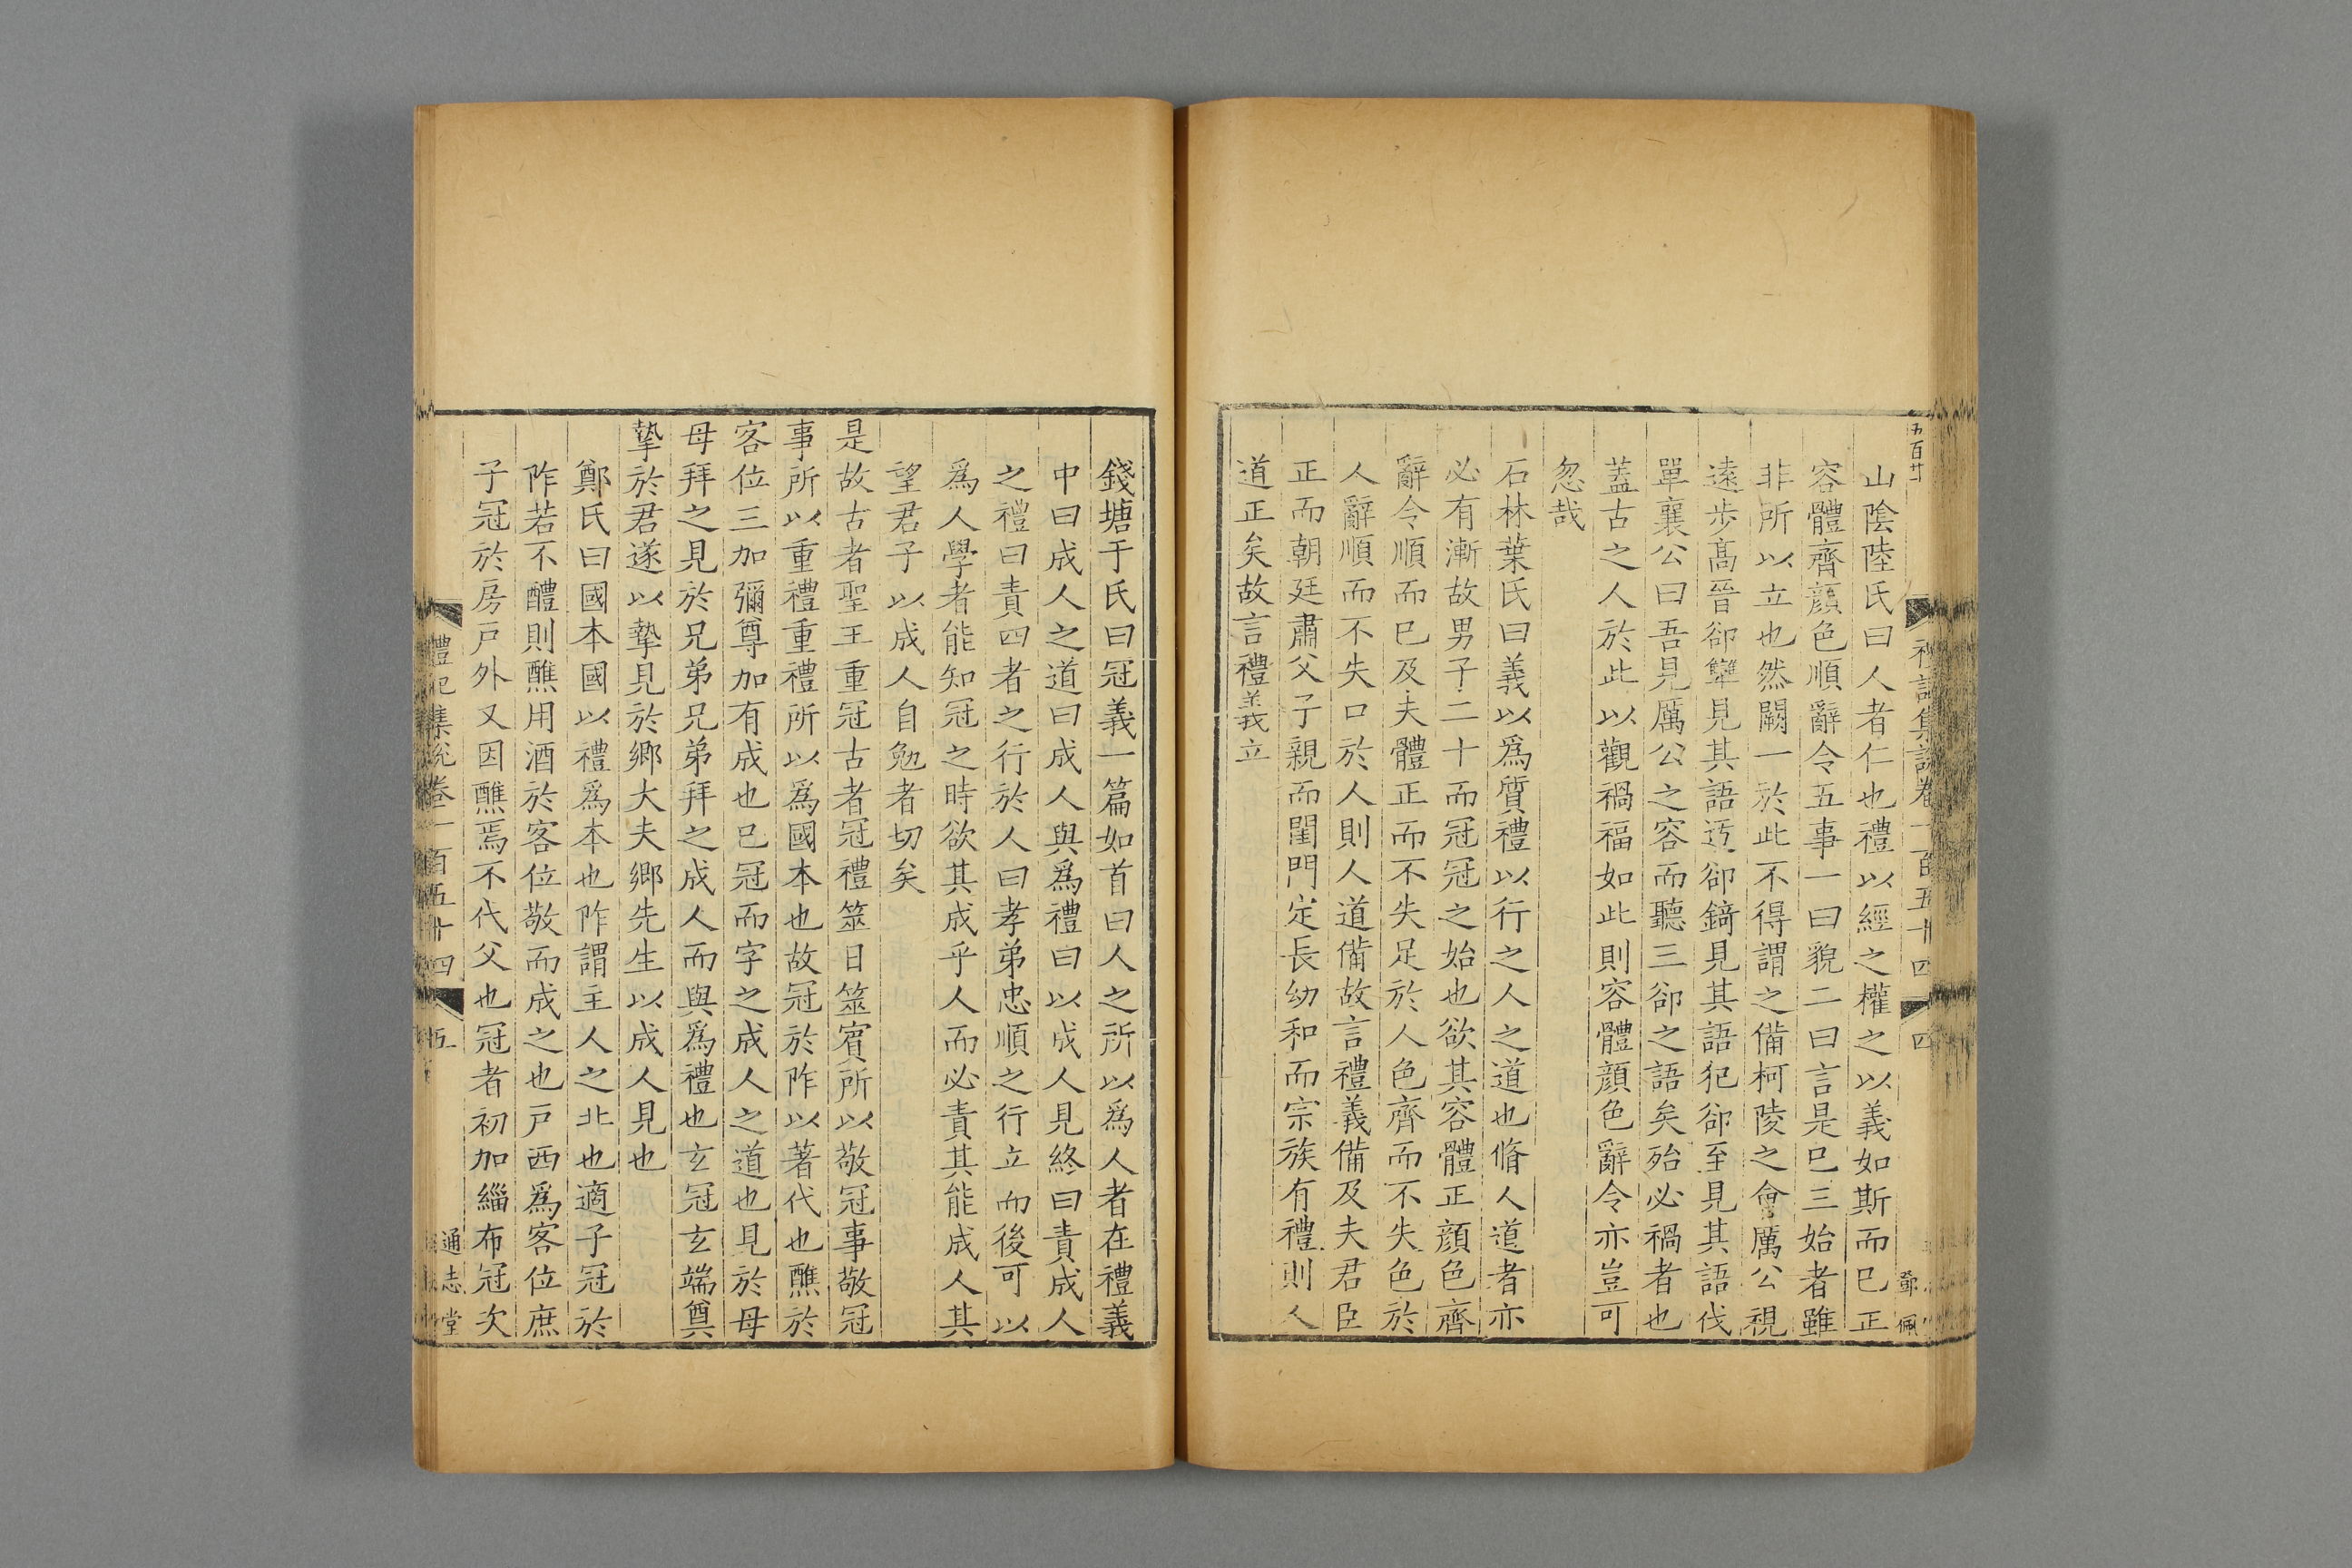 五百廿二
禮記集說卷一百五十四
四
鄧佩
山陰陸氏曰人者仁也禮以經之權之以義如斯而已正
容體齊顏色順辭令五事一曰貌二曰言是已三始者雖
非所以立也然闕一於此不得謂之備柯陵之會厲公視
遠步高晉郤犫見其語迃郤錡見其語犯郤至見其語伐
單襄公曰吾見厲公之容而聽三郤之語矣殆必禍者也
蓋古之人於此以觀禍福如此則容體顏色辭令亦豈可
忽哉
石林葉氏曰義以爲質禮以行之人之道也脩人道者亦
必有漸故男子二十而冠冠之始也欲其容體正顏色齊
辭令順而已及夫體正而不失足於人色齊而不失色於
人辭順而不失口於人則人道備故言禮義備及夫君臣
正而朝廷肅父子親而閨門定長幼和而宗族有禮則人
道正矣故言禮義立
錢塘于氏曰冠義一篇如首曰人之所以爲人者在禮義
中曰成人之道曰成人與爲禮曰以成人見終曰責成人
之禮曰責四者之行於人曰孝弟忠順之行立而後可以
爲人學者能知冠之時欲其成乎人而必責其能成人其
望君子以成人自勉者切矣
是故古者聖王重冠古者冠禮筮日筮賓所以敬冠事敬冠
事所以重禮重禮所以爲國本也故冠於阼以著代也醮於
客位三加彌尊加有成也已冠而字之成人之道也見於母
母拜之見於兄弟兄弟拜之成人而與爲禮也玄冠玄端奠
摯於君遂以摯見於鄉大夫鄉先生以成人見也
鄭氏曰國本國以禮爲本也阼謂主人之北也適子冠於
阼若不醴則醮用酒於客位敬而成之也戸西爲客位庶
子冠於房戸外又因醮焉不代父也冠者初加緇布冠次
禮記集說卷一百五十四
五
通志堂